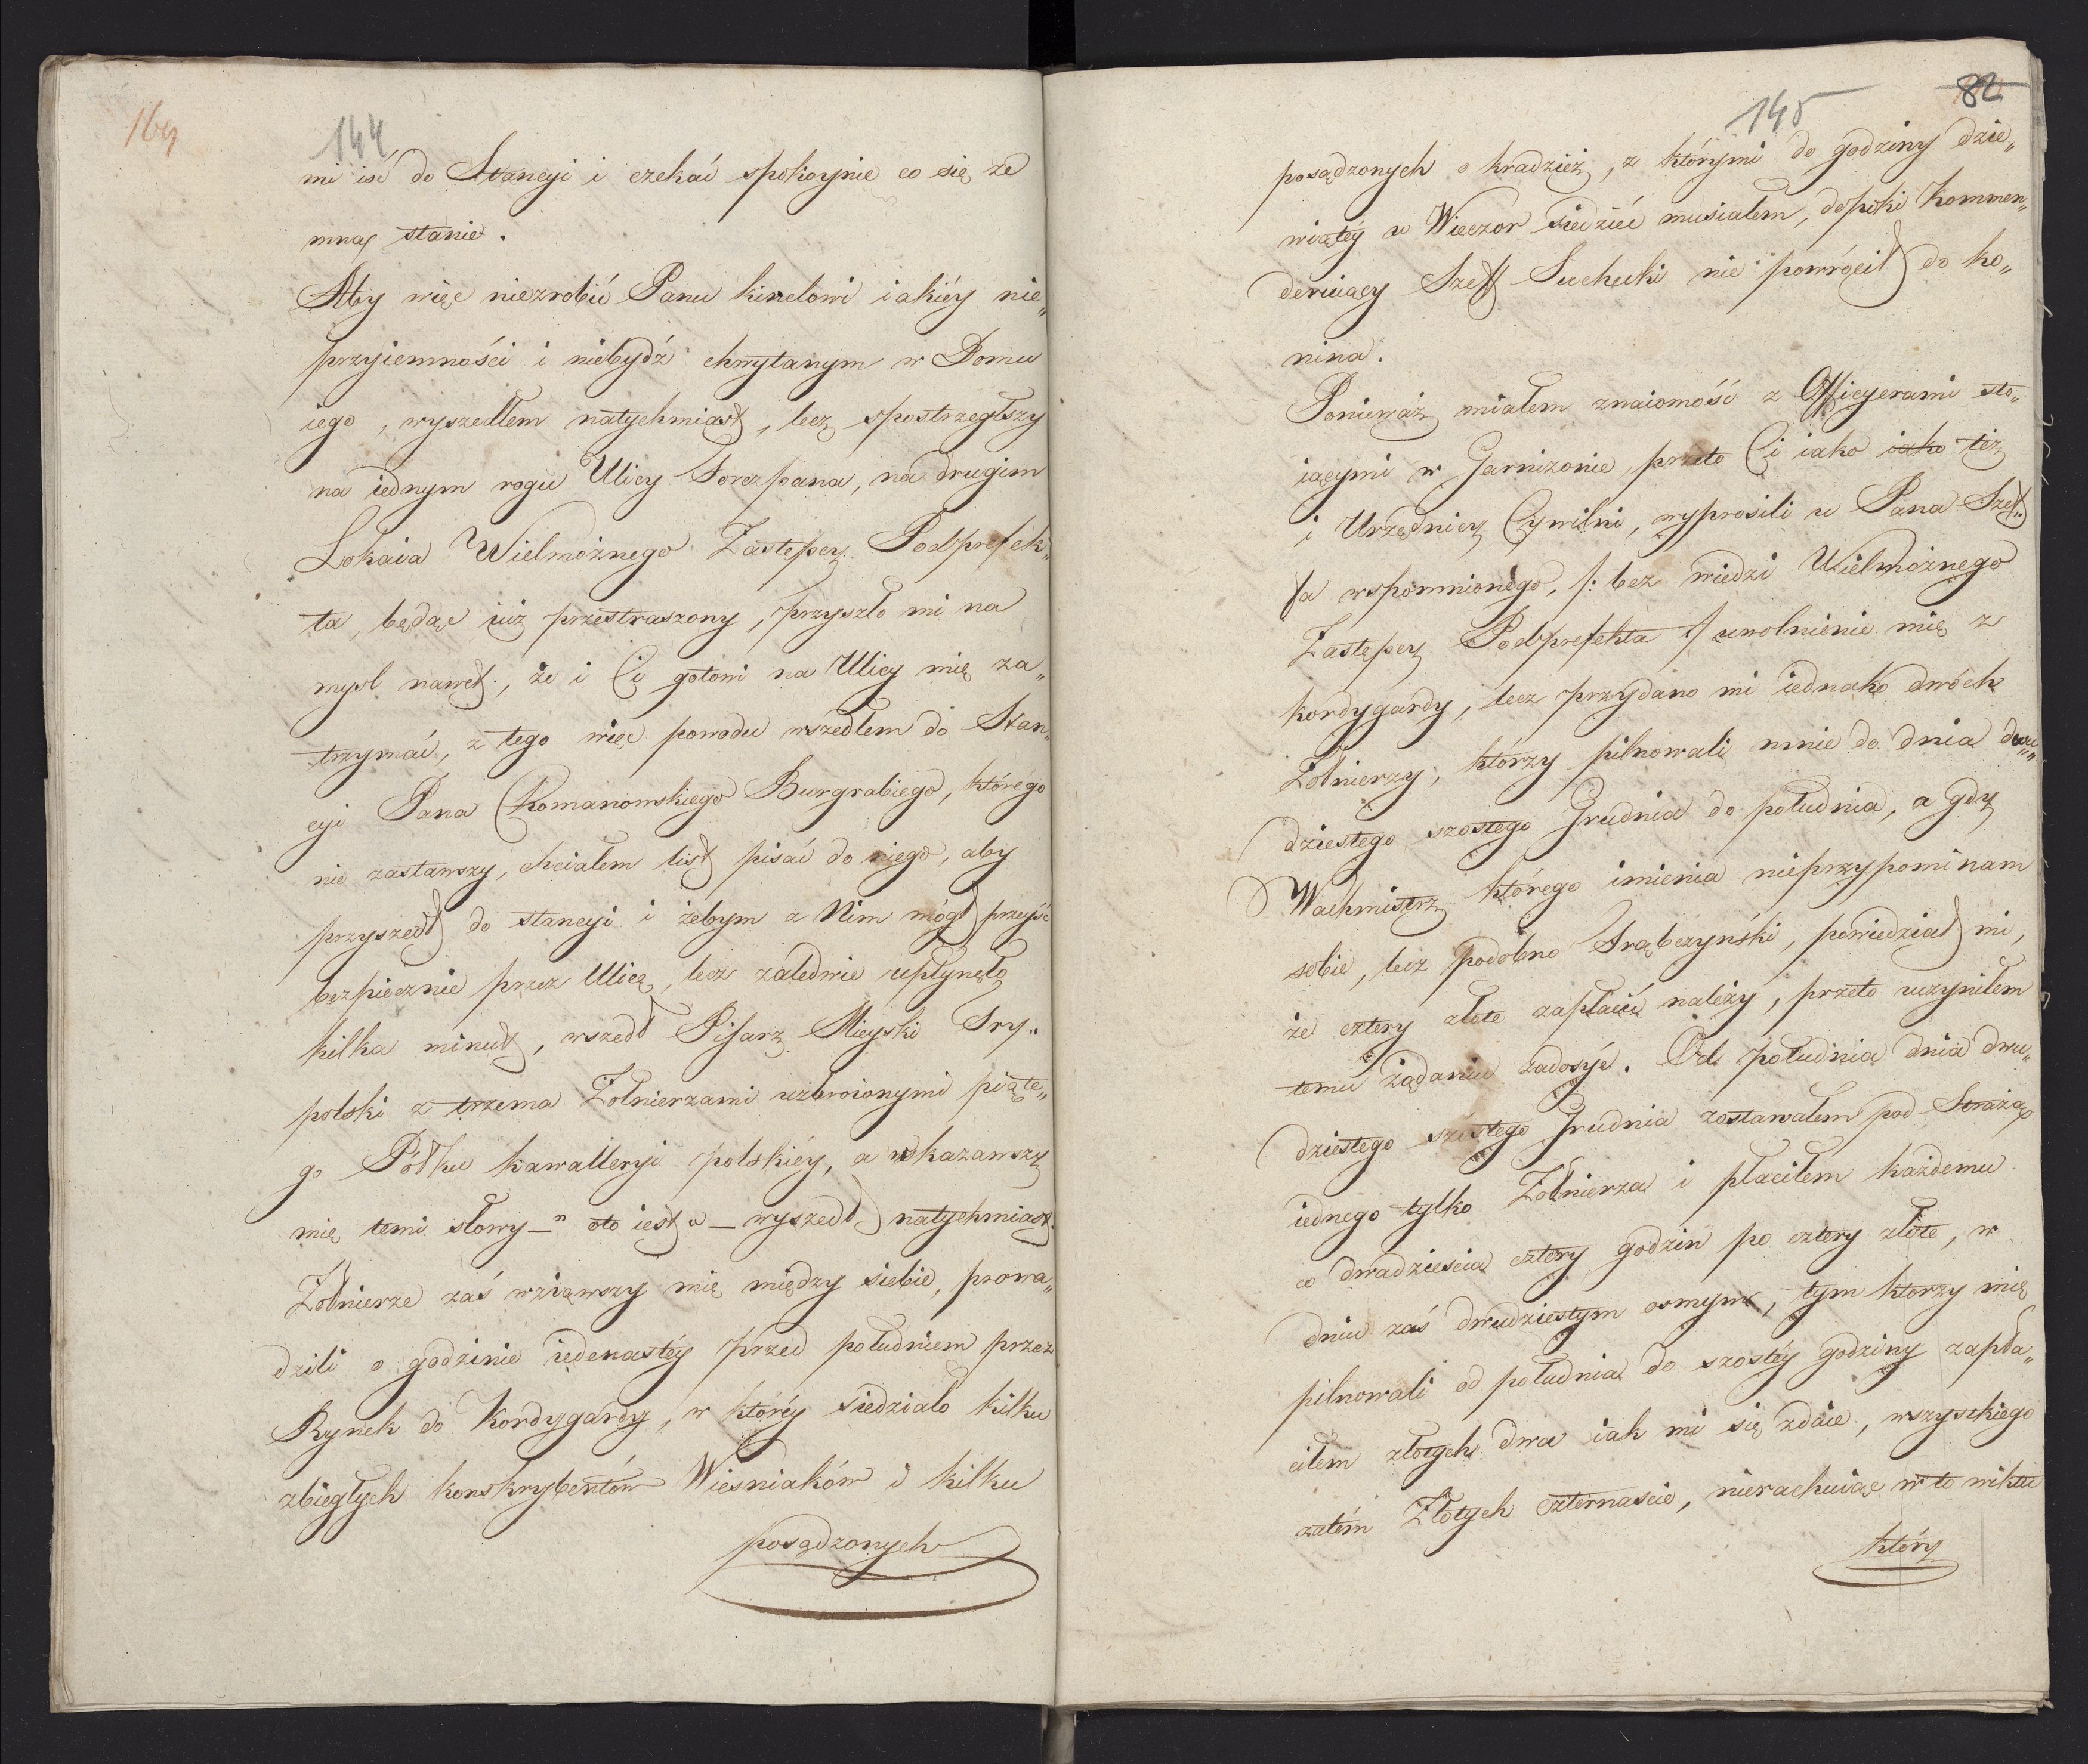 169
144
mi iść do Stancyi i czekać spokoynie co się ze
mną stanie.
Aby więc niezrobić Panu kinelowi iakiéy nie„
przyiemności i niebydź chwytanym w Domu
iego, wyszedłem natychmiast, lecz spostrzegłszy
na iednym rogu Ulicy Sorczpana, na drugim
Lokaia Wielmożnego Zastępcy Podprefek„
ta, będąc iuż przestraszony, przyszło mi na
mysl nawet, że i Ci gotowi na Ulicy mię za„
trzymać, z tego więc powodu wszedłem do Stan„
cyi Pana Romanowskiego Burgrabiego, którego
nie zastawszy, chciałem list pisać do niego, aby
przyszedł do stancyi i żebym z Nim mógł przeyść
bezpiecznie przez Ulicę, lecz zaledwie upłynęło
kilka minut, wszedł Pisarz Mieyski Try„
polski z trzema Żołnierzami uzbroionymi piąte„
go Półku kawalleryi polskiéy, a wskazawszy
mię temi słowy – „ oto iest “ – wyszedł natychmiast.
Żołnierze zaś wziąwszy mię między siebie, prowa„
dzili o godzinie iedenastéy przed południem przez
Rynek do Kordygardy, w któréy siedziało kilku
zbiegłych konskrybentów Wieśniaków i kilku
posądzonych
82
145
posądzonych o kradzież, z którymi do godziny dzie„
wiątéy w Wieczor siedzieć musiałem, dopóki Kommen„
deruiący Szeff Suchecki nie powrócił do ko„
nina.
Ponieważ miałem znaiomość z Officyerami sto„
iącymi w Garnizonie, przeto Ci iako iako też
i Urzędnicy Cywilni, wyprosili u Pana Szef„
fa wspomnionego, /: bez wiedzi Wielmożnego
Zastępcy Podprefekta :/ uwolnienie mię z
kordygardy, lecz przydano mi iednako dwóch
Żołnierzy, którzy pilnowali mnie do dnia dwu„
dziestego szostego Grudnia do południa, a gdy
Wachmistrz którego imienia nieprzypominam
sobie, lecz podobno Trąbczyński, powiedział mi,
że cztery złote zapłacić należy, przeto uczyniłem
temu żądaniu zadosyć. Od południa dnia dwu„
dziestego szóstego Grudnia zostawałem pod Strażą
iednego tylko Żołnierza i płaciłem każdemu
co dwadzieścia cztery godzin po cztery złote, w
dniu zaś dwudziestym osmym, tym ktorzy mię
pilnowali od południa do szostéy godziny zapła„
ciłem złotych dwa iak mi się zdaie, wszystkiego
zatém Złotych czternaście, nierachuiąc w to wiktu
który